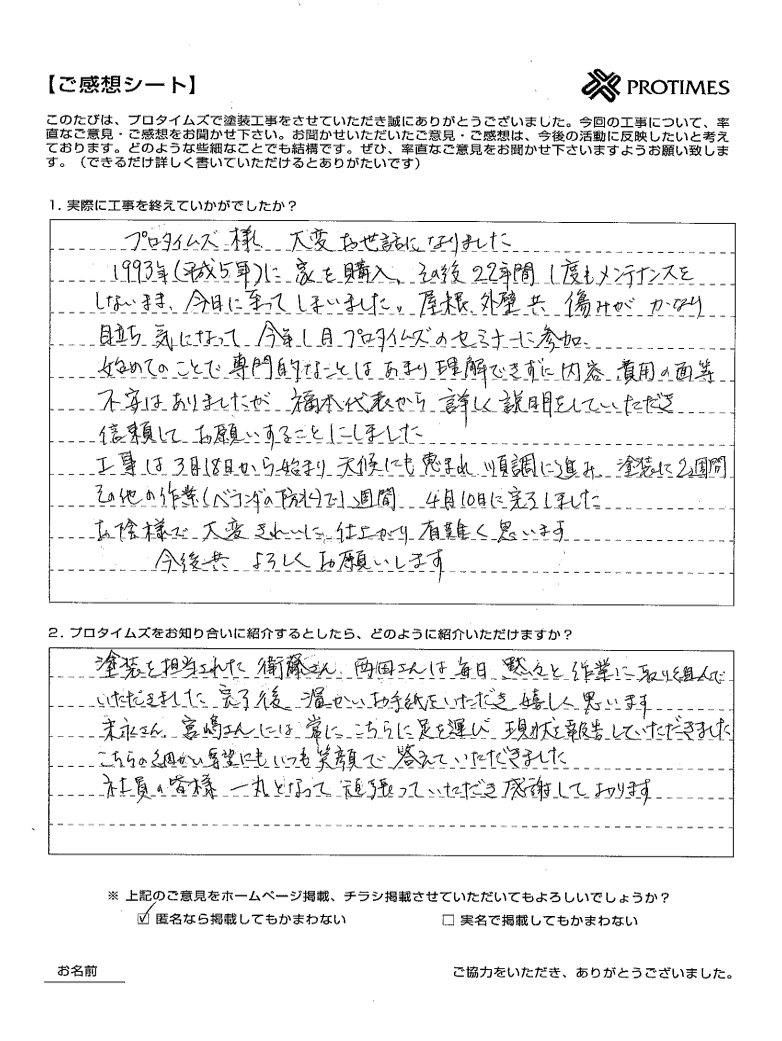 【ご感想シート】
PROTIMES
このたびは、プロタイムズで塗装工事をさせていただき誠にありがとうございました。今回の工事について、率
直なご意見・ご感想をお聞かせ下さい。お聞かせいただいたご意見・ご感想は、今後の活動に反映したいと考え
ております。どのような些細なことでも結構です。ぜひ、率直なご意見をお聞かせ下さいますようお願い致しま
す。（できるだけ詳しく書いていただけるとありがたいです）
1. 実際に工事を終えていかがでしたか？
プロタイムズ 様 大変お世話になりました
1993年(平成5年)に 家を購入、その後22年間 1度もメンテナンスを
しないまま、今日に至ってしまいました。屋根、外壁共 傷みが かなり
目立ち 気になって 今年1月プロタイムズのセミナーに参加、
始めてのことで専門的なことはあまり理解できずに内容、費用の面等
不安はありましたが 福本代表から 詳しく説明をしていただき
信頼して お願いすることにしました
工事は3月18日から始まり 天候にも恵まれ 順調に進み 塗装に2週間
その他の作業(ベランダの防水)で1週間 4月10日に完了しました
お陰様で 大変きれいに仕上がり 有難く思います
今後共 よろしくお願いします
2. プロタイムズをお知り合いに紹介するとしたら、どのように紹介いただけますか？
塗装を担当された 衛藤さん 西田さんは毎日 黙々と作業に取り組んで
いただきました 完了後 温かいお手紙をいただき嬉しく思います
末永さん、宮嶋さんには常に こちらに足を運び 現状を報告していただきました
こちらの細かい要望にもいつも笑顔で 答えていただきました
社員の皆様 一丸となって 頑張っていただき感謝しております
※ 上記のご意見をホームページ掲載、チラシ掲載させていただいてもよろしいでしょうか？
☑ 匿名なら掲載してもかまわない
□ 実名で掲載してもかまわない
お名前
ご協力をいただき、ありがとうございました。